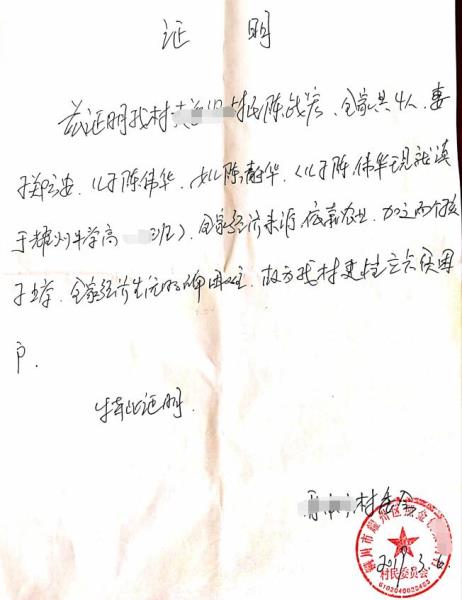 证 明
兹证明我村 村民陈战宏、全家共4人、妻
子郑 、儿子陈伟华、女儿陈静华、(儿子陈伟华现就读
于耀州中学高 班)、全家经济来源依靠农业、加之两个孩
子上学、全家经济生活 困难、故为我村建档立卡贫困
户.
特此证明.
村委会
2019.3.6
村民委员会